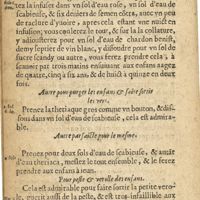 tez la infuser dans vn sol d'eau rose, vn sol d'eau de
scabieuse, & six deniers de semen côtra, auec vn peu
de raclure d'yuoire, apres cela estant vne nuict en
infusion, vous coulerez le tout, & sur la la collature,
y adiousterez pour vn sol d'eau de chardon benist,
demy septier de vin blanc, y dissoudre vn sol de
sucre scandy ou autre, vous ferez prendre cela, à
scauoir par trois matins ensuiuant aux enfans aagez
de quatre, cinq à six ans, & de huict à quinze en deux
fois.
Autre pour purger les enfans, & faire sortir
les vers.
Prenez la theriaque gros comme vn bouton, & dissous
dans vn sol d'eau de scabieuse, cela est admirable.
Autre parfaicte pour le mesme.
Prenez pour deux sols d'eau de scabieuse, & autāt
d'eau theriaca, meslez le tout ensemble, & le ferez
prendre aux enfans à ieun.
Pour peste & verolle des enfans.
Cela est admirable pour faire sortir la petite verole,
guerit aussi de la peste, & est tres-infaillible aux